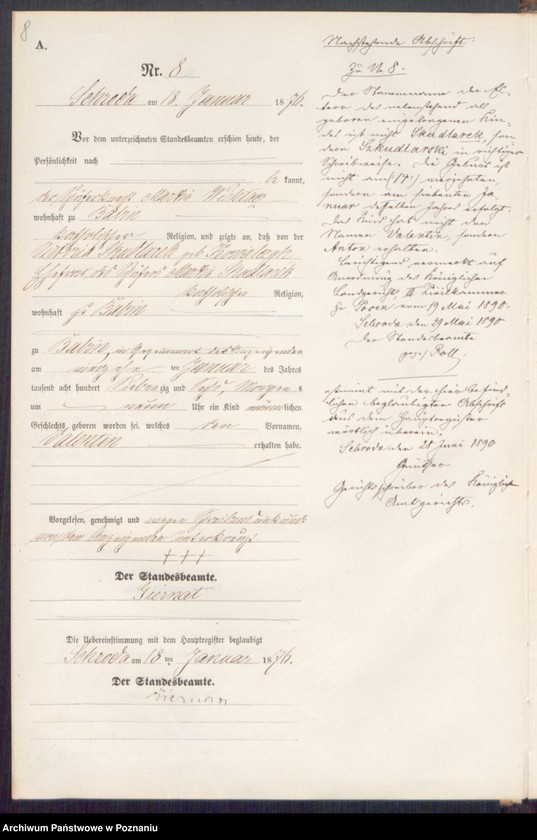 8
A.
Nr. 8
Schroda am 18. Januar 1876.
Vor dem unterzeichneten Standesbeamten erschien heute, der
Persönlichkeit nach
kannt,
wohnhaft zu Babin
katholischer Religion, und zeigte an, daß von der
Skudlarek geb.
Ehefrau des Schäfers Skudlarek
katholischer Religion,
wohnhaft zu Babin
zu Babin, in Gegenwart des Anzeigenden
am ten Januar des Jahres
tausend acht hundert siebenzig und sechs, Morgens
um neun Uhr ein Kind männlichen
Geschlechts geboren worden sei, welches den Vornamen,
Valentin erhalten habe.
Vorgelesen, genehmigt und wegen
Anzeigenden
+ + +
Der Standesbeamte.
Die Uebereinstimmung mit dem Hauptregister beglaubigt
Schroda am 18 ten Januar 1876.
Der Standesbeamte.
Nachstehende Abschrift:
Zu No 8.
Der Stammname der El-
tern des nebenstehend als
geboren eingetragenen Kin-
des ist nicht Skudlarek, son-
dern Szkudlarski in richtiger
Schreibweise. Die Geburt ist
nicht am (17.)
sondern am siebenten Ja-
nuar desselben Jahres erfolgt.
Das Kind hat nicht den
Namen Valentin, sondern
Anton erhalten.
Berichtigend vermerkt auf
Anordnung des Königlichen
Landgerichts, III Civilkammer
zu Posen, vom 19 Mai 1890.
Schroda den 29 Mai 1890
Der Standesbeamte
gez. Roll.
stimmt mit der hier befind-
lichen beglaubigten Abschrift
aus dem Hauptregister
wörtlich überein.
Schroda den 28 Juni 1890
Günther
Gerichtsschreiber des Königlichen
Amtsgerichts.
Archiwum Państwowe w Poznaniu